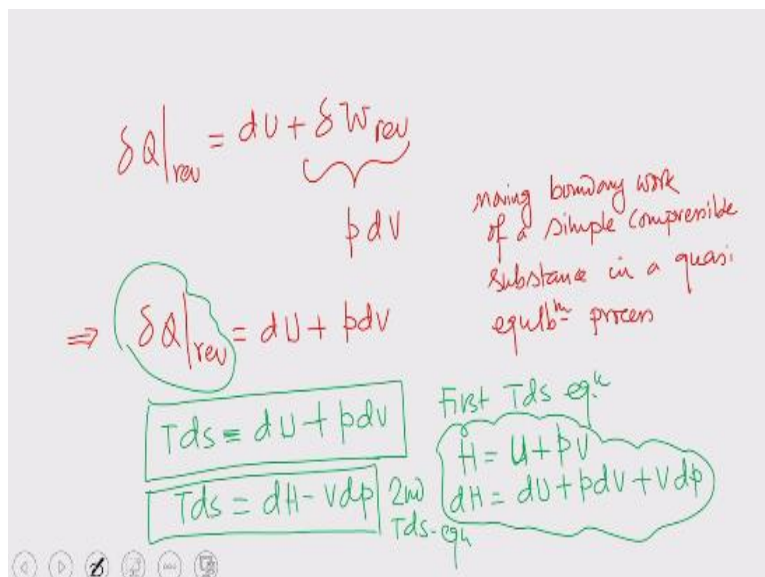 δQ|rev = dU + δWrev
pdV
moving boundary work
of a simple compressible
substance in a quasi
equlbᵐ process
⇒ δQ|rev = dU + pdV
First Tds eqⁿ
Tds = dU + pdV
H = U + pV
dH = dU + pdV + Vdp
Tds = dH - Vdp
2nd
Tds-eqn